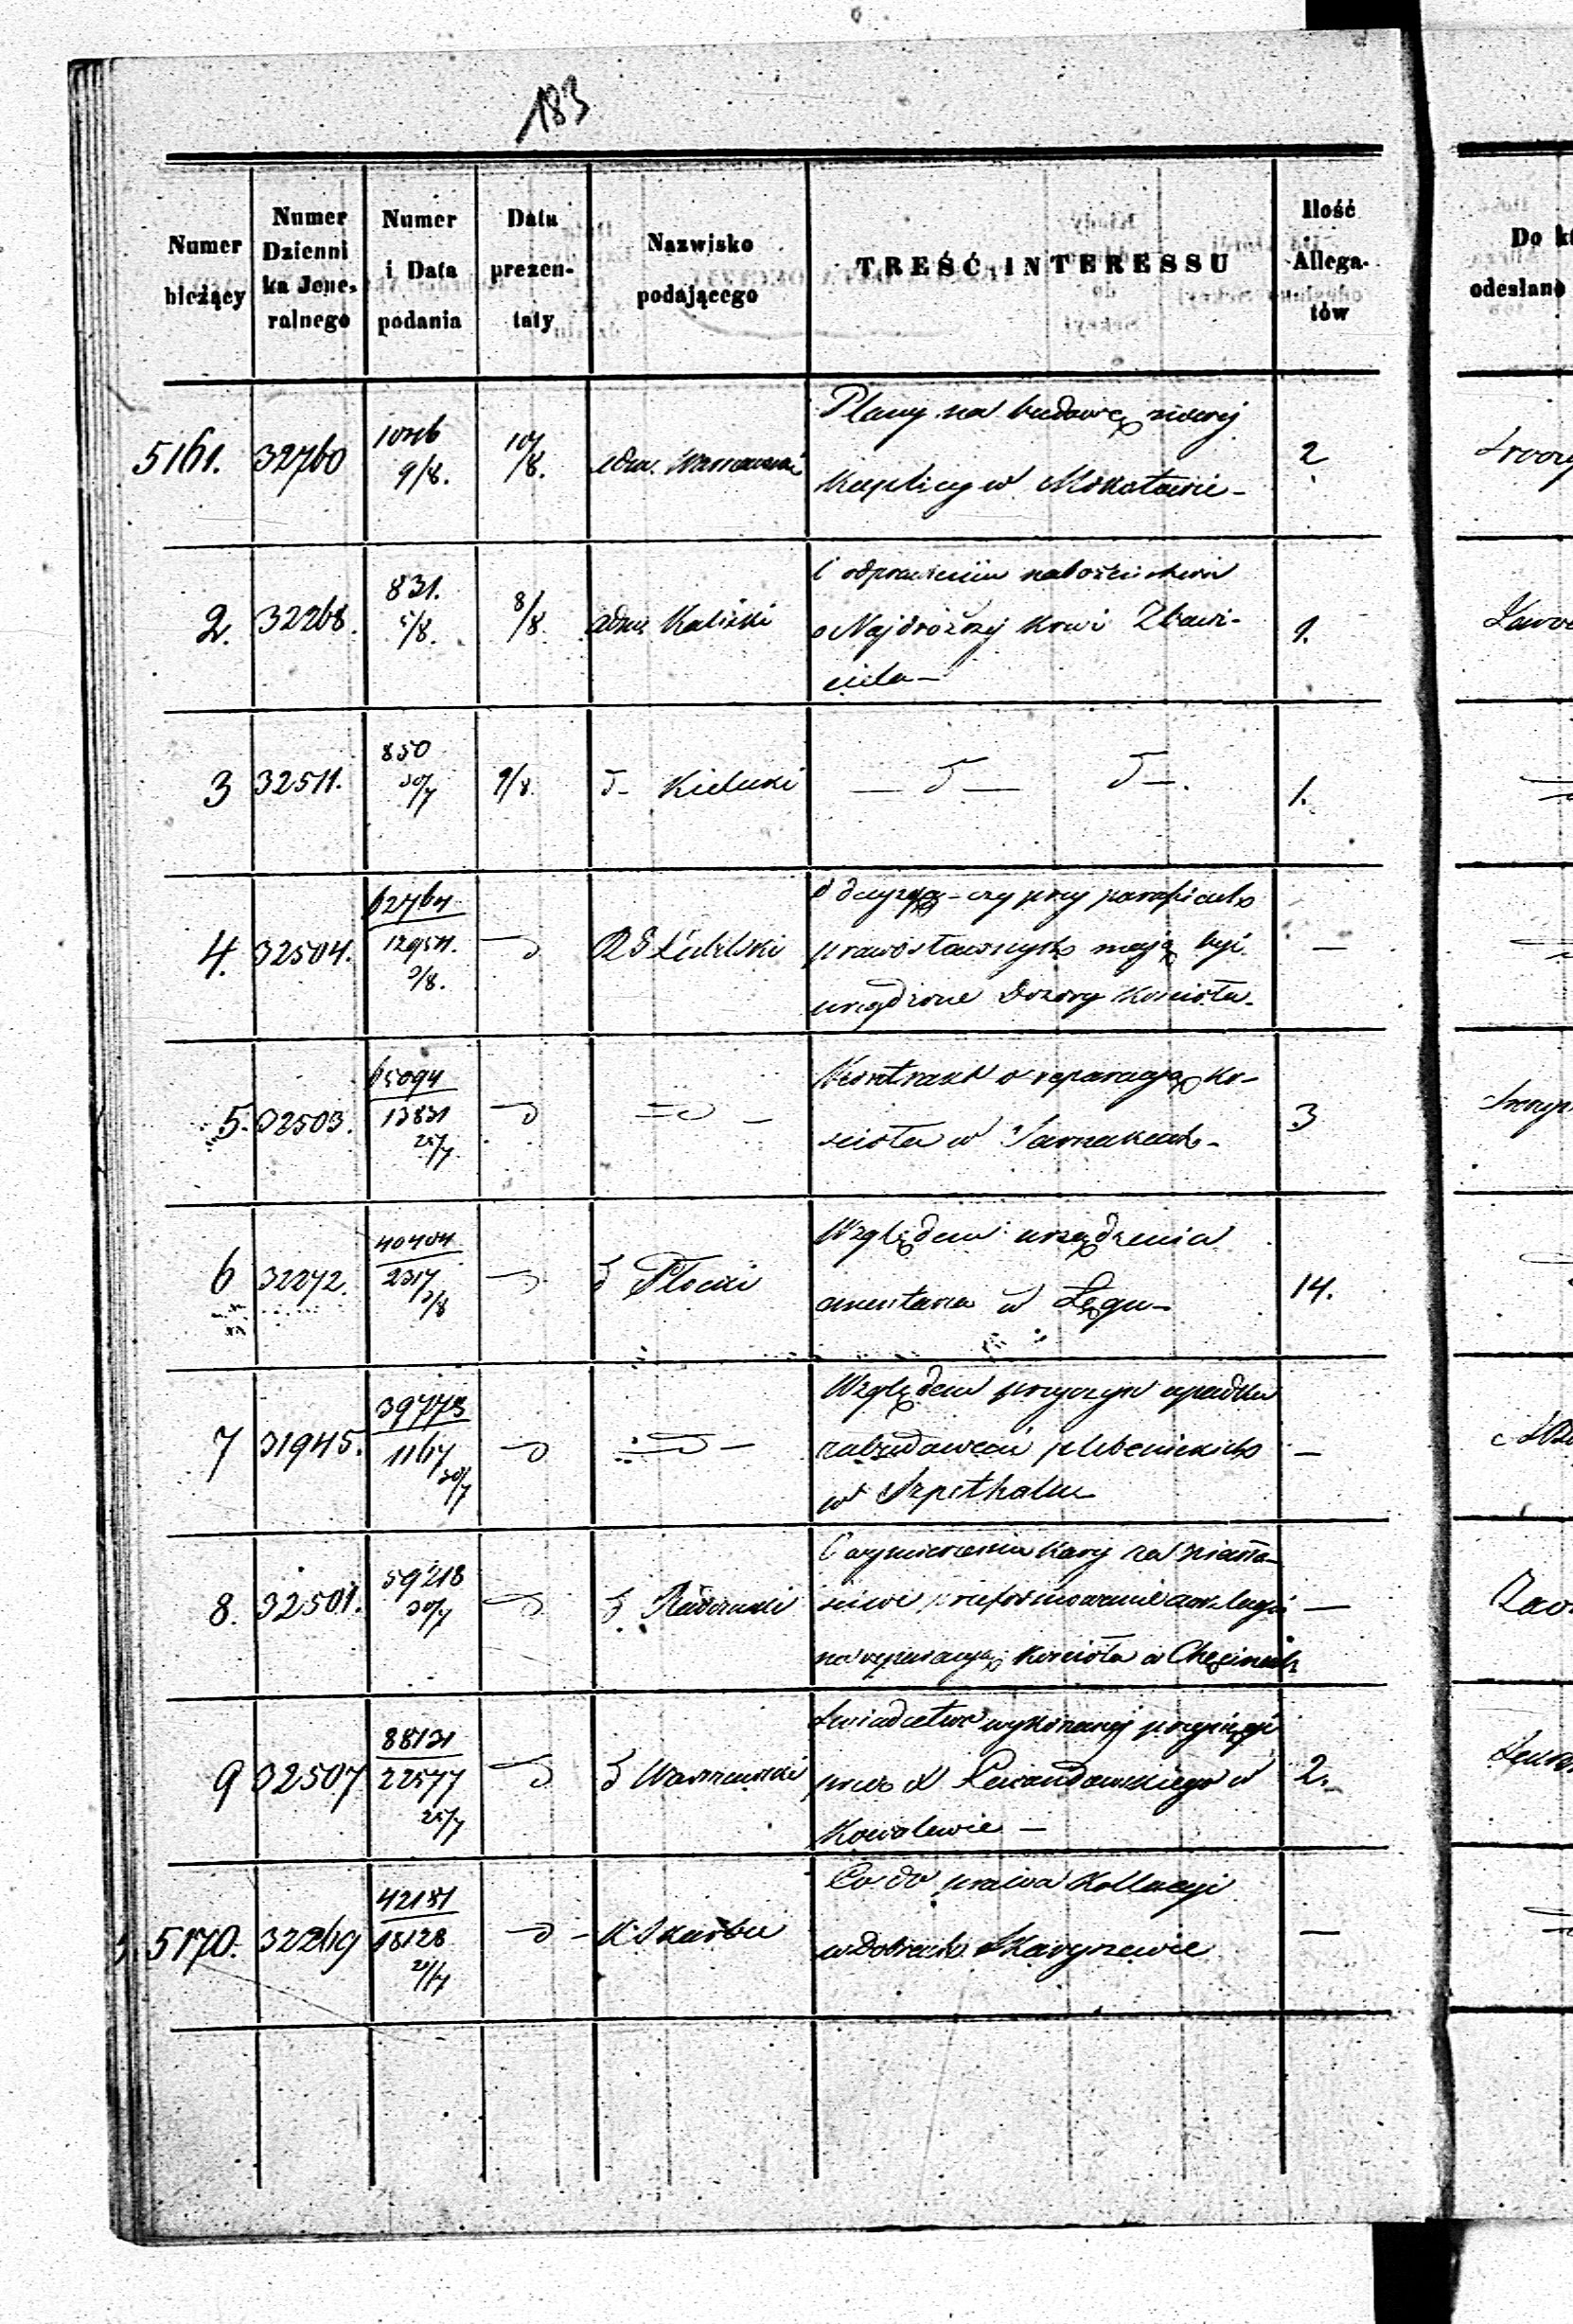 183
Numer bieżący
Numer Dzienni ka Jene- ralnego
Numer i Data podania
Data prezen- taty
Nazwisko podającego
TREŚĆ INTERESSU
Ilość Allega- tów
Do
odesłano
5161. 32760 9/8. 10/8. Plany na budowę nowej 2
Kaplicy w Mokotowie -
2. 32268. 831. 5/8. 8/8. Kaliski O odprawieniu nabożeństwa 1.
o Najdroższej Krwi Zbawi-
ciela -
3 32511. 850 30/7 9/8. Kielecki 1.
4. 32504. 62764 12954. 3/8. RG Lubelski O decyzyę - czy przy parafiach -
prawosławnych mają być
urządzone Dozory Kościoła.
5. 32503. 65094 13831 25/7 Kontrakt o reparacyę Ko- 3
ścioła w Sarnakach -
6 32272. 40404 2317 3/8 Płocki Względem urządzenia 14.
cmentarza w Łęgu -
7 31945. 39773 1167 30/7 Względem przyczyn upadku -
zabudowań plebańskich
w Szpethalu
8. 32501. 59218 30/7 Radomski O wymierzenie kary za niewła- -
ściwe
na reparacyę Kościoła w Chęcinach
9 32507 88131 22577 25/7 Warszawski Świadectwo wykonanej przysięgi 2.
przez X Lewandowskiego w
Kowalewie -
5170. 32269 42181 18128 K. Skarbu Co do prawa Kollacyi -
w Dobrach Skaryszewie